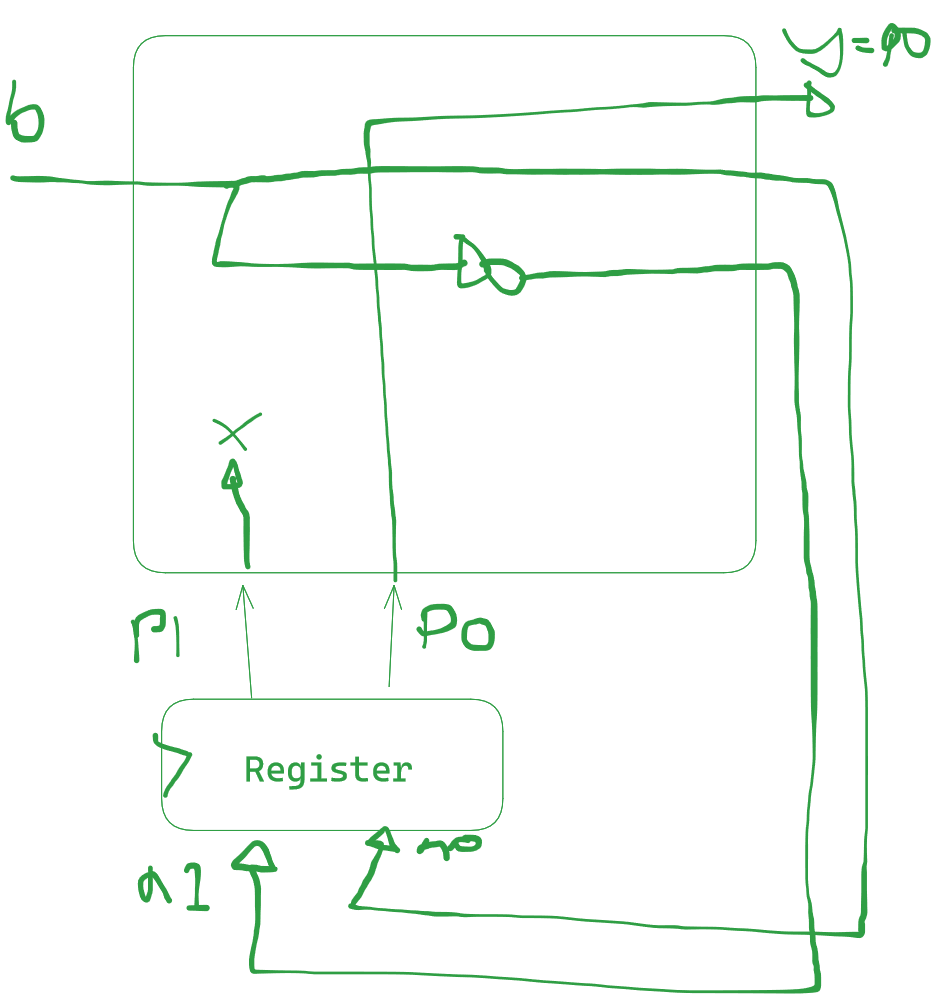 b
y = P0
P1
P0
Register
n1
n0